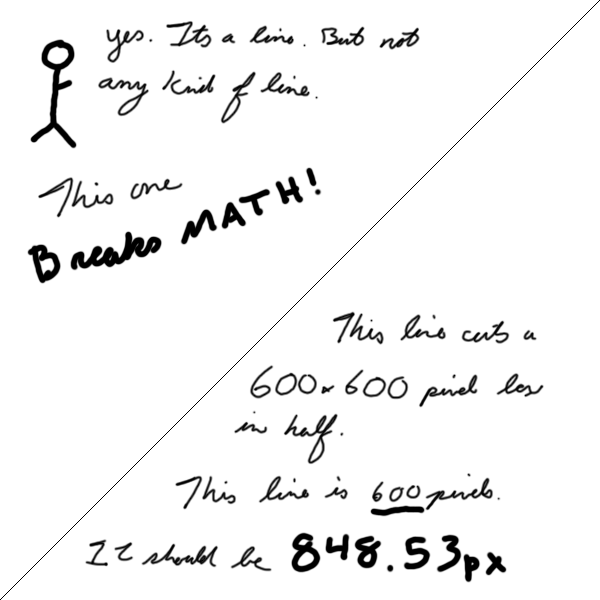 yes. Its a line. But not
any kind of line.
This one
Breaks MATH!
This line cuts a
600x600 pixel box
in half.
This line is 600 pixels.
It should be 848.53px